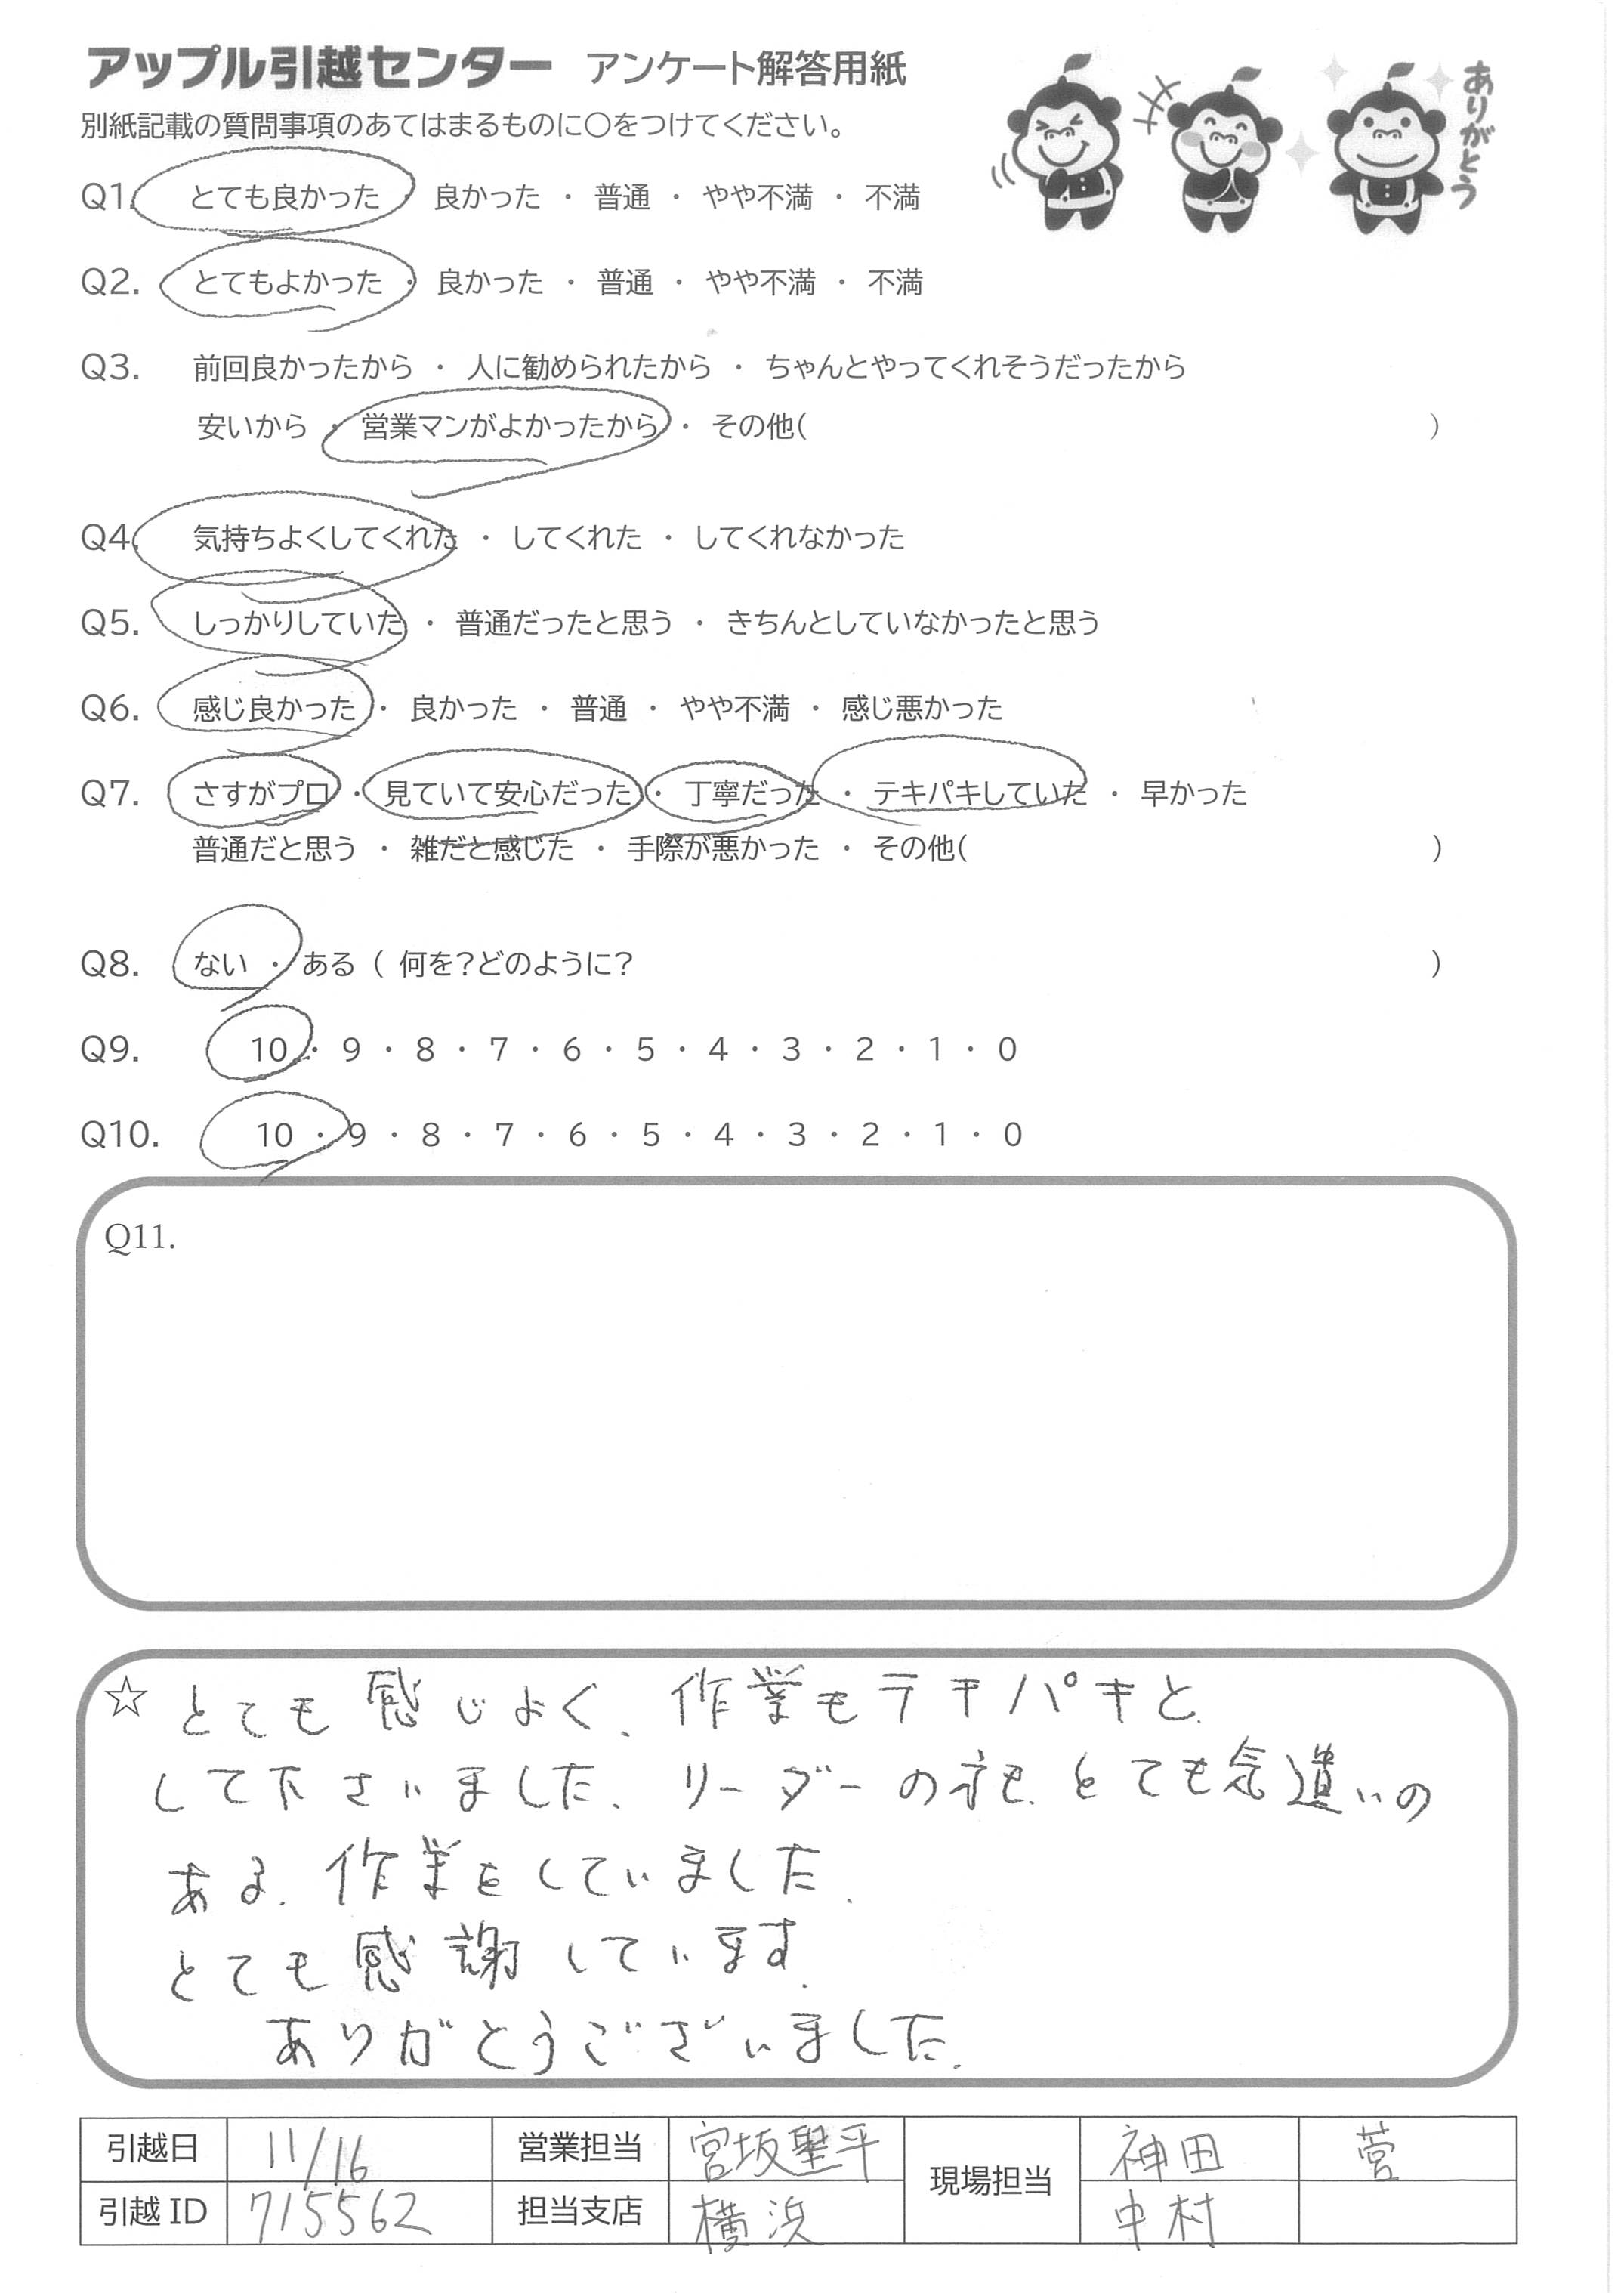 アップル引越センター アンケート解答用紙
ありがとう
別紙記載の質問事項のあてはまるものに○をつけてください。
Q1. とても良かった ・ 良かった ・ 普通 ・ やや不満 ・ 不満
Q2. とてもよかった ・ 良かった ・ 普通 ・ やや不満 ・ 不満
Q3. 前回良かったから ・ 人に勧められたから ・ ちゃんとやってくれそうだったから
安いから ・ 営業マンがよかったから ・ その他( )
Q4. 気持ちよくしてくれた ・ してくれた ・ してくれなかった
Q5. しっかりしていた ・ 普通だったと思う ・ きちんとしていなかったと思う
Q6. 感じ良かった ・ 良かった ・ 普通 ・ やや不満 ・ 感じ悪かった
Q7. さすがプロ ・ 見ていて安心だった ・ 丁寧だった ・ テキパキしていた ・ 早かった
普通だと思う ・ 雑だと感じた ・ 手際が悪かった ・ その他( )
Q8. ない ・ ある ( 何を?どのように? )
Q9. 10 ・ 9 ・ 8 ・ 7 ・ 6 ・ 5 ・ 4 ・ 3 ・ 2 ・ 1 ・ 0
Q10. 10 ・ 9 ・ 8 ・ 7 ・ 6 ・ 5 ・ 4 ・ 3 ・ 2 ・ 1 ・ 0
Q11.
☆ とても感じよく、作業もテキパキと
して下さいました、リーダーの方も、とても気遣いの
ある、作業をしていました、
とても感謝しています.
ありがとうございました.
引越日 11/16 営業担当 宮坂聖平 現場担当 神田 菅
引越 ID 715562 担当支店 横浜 中村